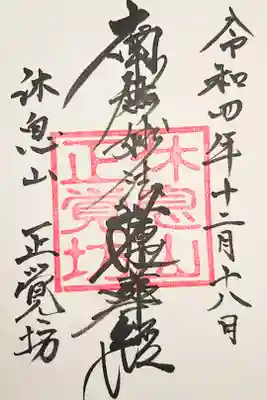 令和四年十二月十八日
南無妙法蓮華経
休息山
正覚坊
休息山　正覚坊